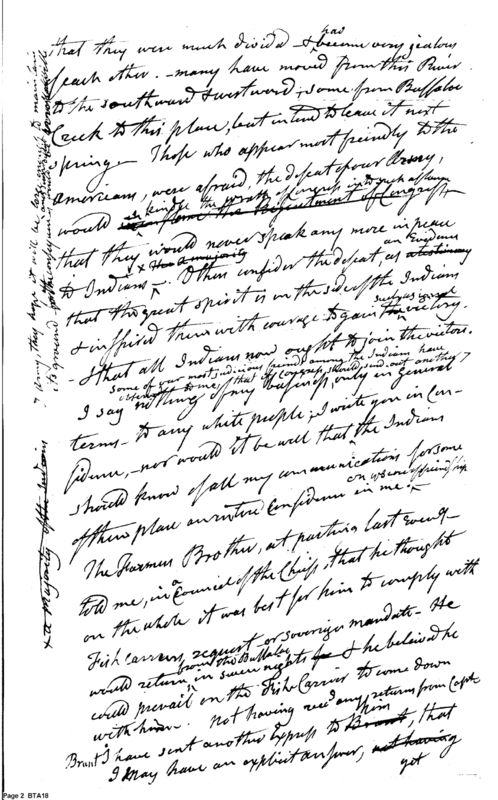 that they were much divided & has become very jealous
of each other. - many have moved from this River
to the southward & westward, some from Buffaloe
Creek to this place, but intend to leave it next
spring - Those who appear most friendly to the
americans, were afraid, the defeat of our Army,
would kindle the wrath of Congress into such a flame
inflame the Resentment of Congress
that they would never speak any more in peace
to Indians - x the majority Others consider the defeat, as an Evidence
that the great spirit is on the side of the Indians
& inspired them with courage to gain such a signal victory.
& that all Indians now ought to join the victors.
some of our most judicious friends among the Indians have
to me, that if Congress, should send out another
I say nothing of my business, only in general
terms - to any white people; I write you in Con-
fidence, - nor would it be well that the Indians
should know of all my communications for some
of them place an entire Confidence in me.
The Farmers Brother, at parting last evening
told me, in a Council of the Chiefs, that he thought
on the whole it was best for him to comply with
Fish Carriers request or sovereign mandate - He
would return from the Buffaloe in seven nights & he believed he
could prevail on the Fish Carrier to come down
with him. Not having recd any returns from Capt
Brant I have sent another Express to him, that
I may have an explicit answer, not having
yet
Army, they hope it will be large enough to
x a Majority of the Indians
Page 2 BTA18